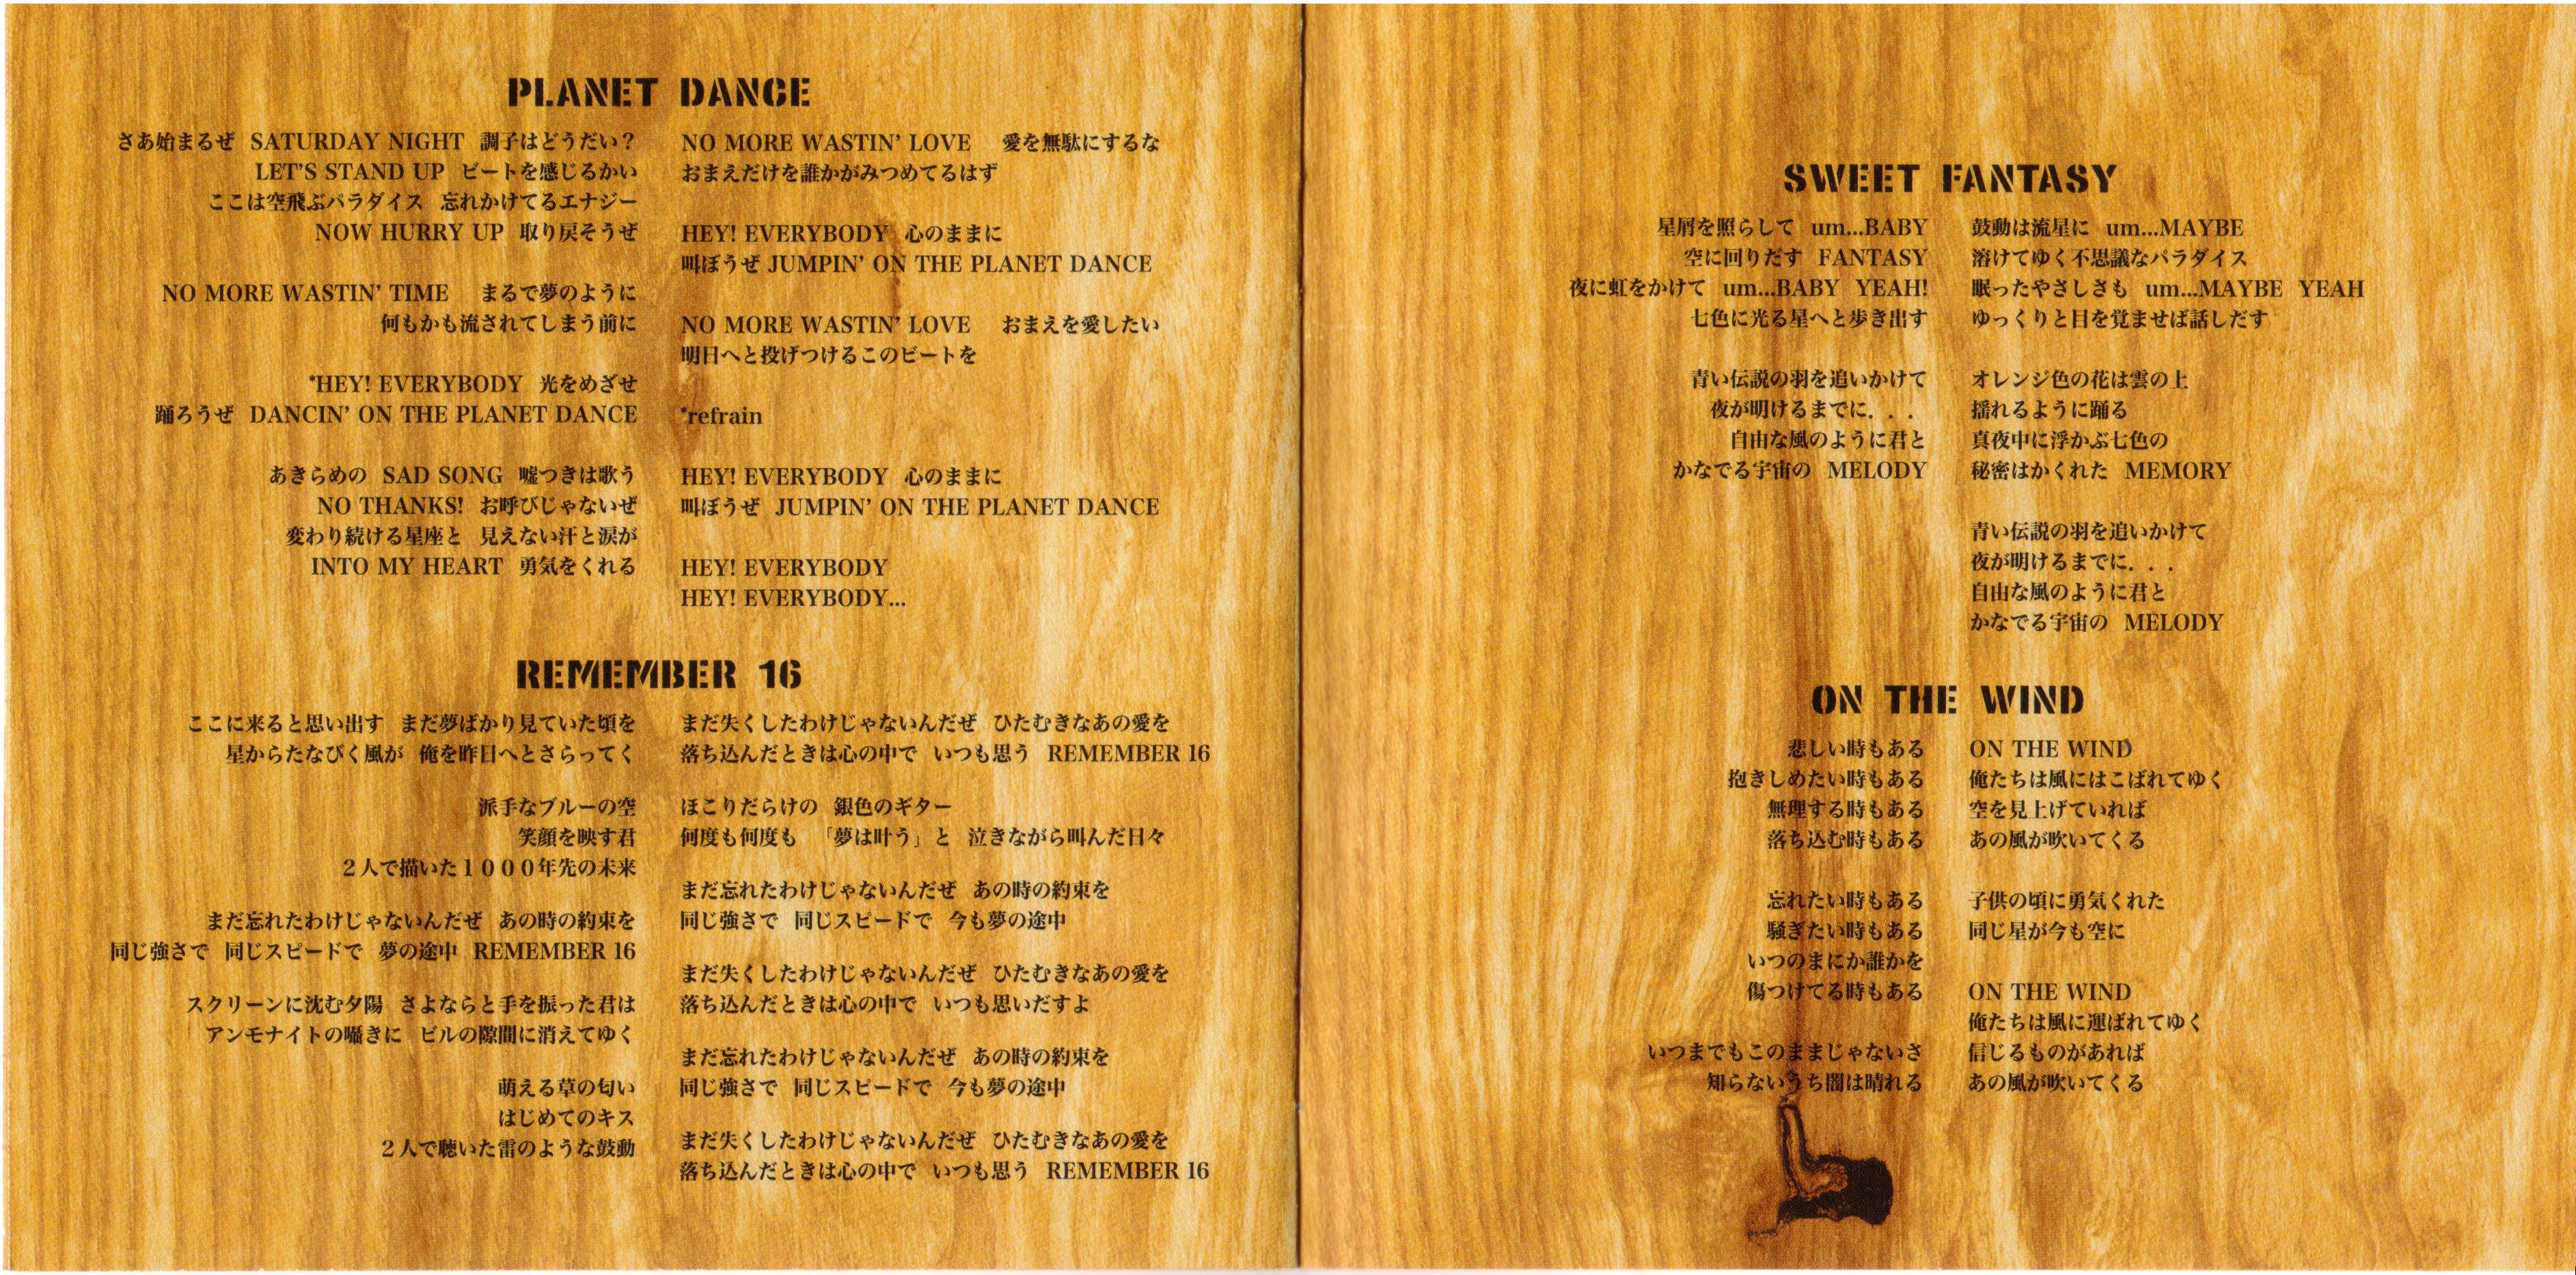 PLANET DANCE
さあ始まるぜ SATURDAY NIGHT 調子はどうだい？
LET'S STAND UP ビートを感じるかい
ここは空飛ぶパラダイス 忘れかけてるエナジー
NOW HURRY UP 取り戻そうぜ
NO MORE WASTIN' TIME まるで夢のように
何もかも流されてしまう前に
*HEY! EVERYBODY 光をめざせ
踊ろうぜ DANCIN' ON THE PLANET DANCE
あきらめの SAD SONG 嘘つきは歌う
NO THANKS! お呼びじゃないぜ
変わり続ける星座と 見えない汗と涙が
INTO MY HEART 勇気をくれる
NO MORE WASTIN' LOVE 愛を無駄にするな
おまえだけを誰かがみつめてるはず
HEY! EVERYBODY 心のままに
叫ぼうぜ JUMPIN' ON THE PLANET DANCE
NO MORE WASTIN' LOVE おまえを愛したい
明日へと投げつけるこのビートを
*refrain
HEY! EVERYBODY 心のままに
叫ぼうぜ JUMPIN' ON THE PLANET DANCE
HEY! EVERYBODY
HEY! EVERYBODY...
REMEMBER 16
ここに来ると思い出す まだ夢ばかり見ていた頃を
星からたなびく風が 俺を昨日へとさらってく
派手なブルーの空
笑顔を映す君
２人で描いた１０００年先の未来
まだ忘れたわけじゃないんだぜ あの時の約束を
同じ強さで 同じスピードで 夢の途中 REMEMBER 16
スクリーンに沈む夕陽 さよならと手を振った君は
アンモナイトの囁きに ビルの隙間に消えてゆく
萌える草の匂い
はじめてのキス
２人で聴いた雷のような鼓動
まだ失くしたわけじゃないんだぜ ひたむきなあの愛を
落ち込んだときは心の中で いつも思う REMEMBER 16
ほこりだらけの 銀色のギター
何度も何度も 「夢は叶う」と 泣きながら叫んだ日々
まだ忘れたわけじゃないんだぜ あの時の約束を
同じ強さで 同じスピードで 今も夢の途中
まだ失くしたわけじゃないんだぜ ひたむきなあの愛を
落ち込んだときは心の中で いつも思いだすよ
まだ忘れたわけじゃないんだぜ あの時の約束を
同じ強さで 同じスピードで 今も夢の途中
まだ失くしたわけじゃないんだぜ ひたむきなあの愛を
落ち込んだときは心の中で いつも思う REMEMBER 16
SWEET FANTASY
星屑を照らして um...BABY
空に回りだす FANTASY
夜に虹をかけて um...BABY YEAH!
七色に光る星へと歩き出す
青い伝説の羽を追いかけて
夜が明けるまでに．．．
自由な風のように君と
かなでる宇宙の MELODY
鼓動は流星に um...MAYBE
溶けてゆく不思議なパラダイス
眠ったやさしさも um...MAYBE YEAH
ゆっくりと目を覚ませば話しだす
オレンジ色の花は雲の上
揺れるように踊る
真夜中に浮かぶ七色の
秘密はかくれた MEMORY
青い伝説の羽を追いかけて
夜が明けるまでに．．．
自由な風のように君と
かなでる宇宙の MELODY
ON THE WIND
悲しい時もある
抱きしめたい時もある
無理する時もある
落ち込む時もある
忘れたい時もある
騒ぎたい時もある
いつのまにか誰かを
傷つけてる時もある
いつまでもこのままじゃないさ
知らないうち闇は晴れる
ON THE WIND
俺たちは風にはこばれてゆく
空を見上げていれば
あの風が吹いてくる
子供の頃に勇気くれた
同じ星が今も空に
ON THE WIND
俺たちは風に運ばれてゆく
信じるものがあれば
あの風が吹いてくる